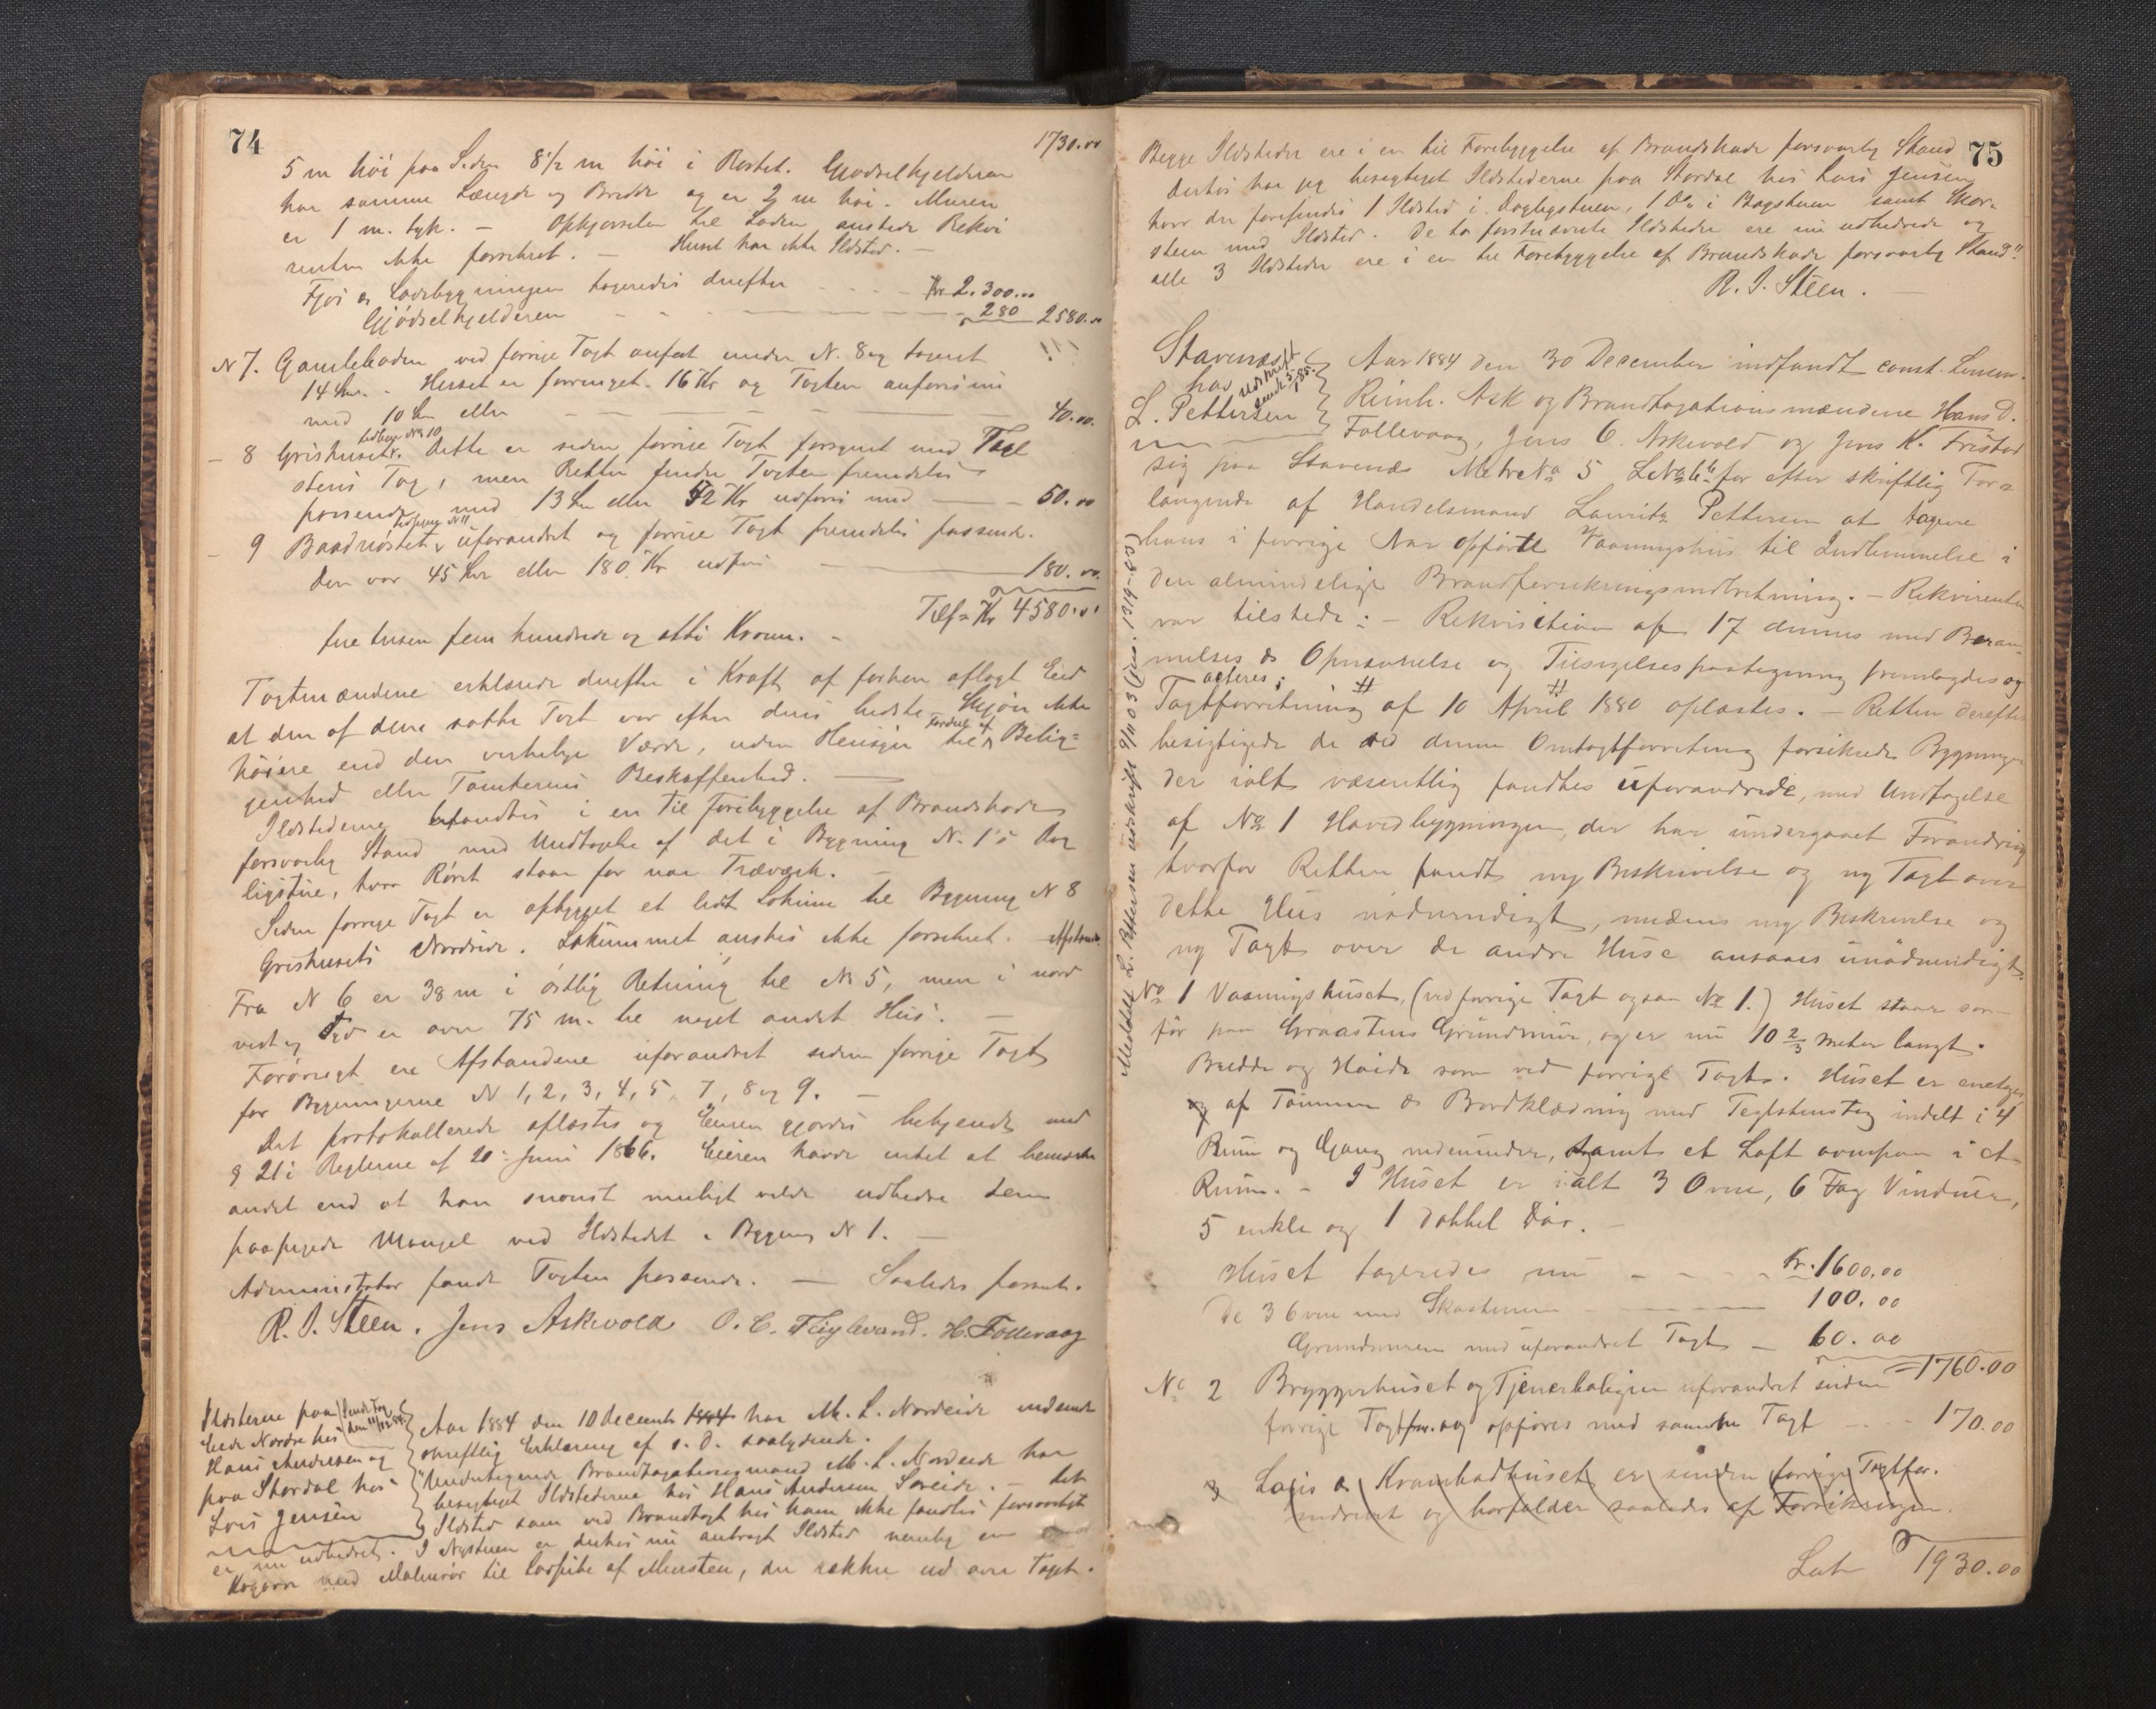 74
1730.00
5 m høi paa Siden 8 1/2 m høi i Røstet. Gjødselkjelderen
har samme Længde og Bredde og er 2 m høi. Muren
er 1 m. tyk. — Opkjørselen til Laden ønskede Rekvi
renten ikke forsikret. — Huset har ikke Ildsted. —
Fjøs og Ladebygningen taxeredes derefter - - - - Kr 2.300.00
Gjødselkjelderen - - - 280 2580.00
N 7. Gamleladen ved forrige Taxt anført under N. 8 og taxeret
14 Kr. - Huset er forringet. 16 Kr og Taxten anføres nu
med 10 Kr eller — — — 40.00
- 8 Grishuset. Dette er siden forrige Taxt forsynet med Tagl
stens Tag, men Retten finder Taxten fremdeles
passende med 13 Kr eller 52 Kr udføres med — - 50.00
- 9 Baadnøstet, uforandret og forrige Taxt fremdeles passende.
Den var 45 Kr eller 180 Kr udføres — 180.00
Tils. Kr 4580.00
fire tusen fem hundrede og otti Kroner. -
Taxtmændene erklærede derefter i Kraft af forhen aflagt Eed
at den af dem satte Taxt var efter deres bedste Skjøn ikke
høiere end den virkelige Værdi, uden Hensyn til Fordel af Belig=
genhed eller Tomternes Beskaffenhed. —
Ildstederne befandtes i en til Forebyggelse af Brandskade
forsvarlig Stand med Undtagelse af det i Bygning N. 1's Dag
ligstue, hvor Røret staar for nær Træværk. —
Siden forrige Taxt er opbygget et lidt Lokum til Bygning N 8
Grishusets Nordside. Lokummet ønskes ikke forsikret. Afstand.
Fra N 6 er 38 m i østlig Retning til N 5, men i nord
vest og Syd er over 75 m. til noget andet Hus. —
Forøvrigt ere Afstandene uforandret siden forrige Taxt
for Bygningerne N 1, 2, 3, 4, 5, 7, 8 og 9. —
Det protokollerede oplæstes og Eieren gjordes bekjendt med
§ 21 i Reglerne af 20 Juni 1866. Eieren havde intet at bemærke
andet end at han snarest muligt vilde udbedre den
paapegede Mangel ved Ildstedet i Bygning N 1. —
Administrator fandt Taxten passende. — Saaledes passert.
R. J. Steen. Jens Askevold O. C. Fuglevand. H. Follevaag
Ildstederne paa
Eide Nordre hos
Hans Andersen og
paa Stordal hos
Lars Jensen
Aar 1884 den 10 December 1884 har M. L. Nordeide indsendt
skriftlig Erklæring af s. D. saalydende.
"Undertegnede Brandtaxationsmand M. L. Nordeide har
besigtiget Ildstederne hos Hans Andersen Søreide. — Det
Ildsted som ved Brandtaxt hos ham ikke fandtes forsvarligt
er nu udbedret. I Nystuen er derhos nu anbragt Ildsted nemlig en
Kogeovn med Malmrør til Ladpibe af Mursten, der rækker ud over Taget.
75
Begge Ildsteder ere i en til Forebyggelse af Brandskade forsvarlig Stand
Derhos har jeg besigtiget Ildstederne paa Stordal hos Lars Jensen
hvor der forefindes 1 Ildsted i Dagligstuen, 1 Do i Bagstuen samt Skor-
sten med Ildsted. De to førstnævnte Ildsteder ere nu udbedrede og
alle 3 Ildsteder ere i en til Forebyggelse af Brandskade forsvarlig Stand".
R. J. Steen. —
Stavenæs
hos
L. Pettersen
Udskrift
sendt 5/1 85.
Aar 1884 den 30 December indfandt const. Lensm.
Reinh. Ask og Brandtaxationsmændene Hans D.
Follevaag, Jens O. Askevold og Jens K. Fristad
sig paa Stavenæs Matr No 5 LNo 6b for efter skriftlig For=
langende af Handelsmand Lauritz Pettersen at taxere
hans i forrige Aar opførte Vaaningshus til Indlemmelse i
den almindelige Brandforsikringsindretning. — Rekvirenten
var tilstede: — Rekvisition af 17 dennes med Beram-
melses & Opnævnelse og Tilsigelsespaategning fremlagdes og
acteres;
Taxtforretning af 10 April 1880 oplæstes. — Retten derefter
besigtigede de ved denne Omtaxtforretning forsikrede Bygninger
der ialt væsentlig fandtes uforandrede, med Undtagelse
af No 1 Hovedbygningen, der har undergaaet Forandring
hvorfor Retten fandt ny Beskrivelse og ny Taxt over
dette Hus nødvendigt, medens ny Beskrivelse og
ny Taxt over de andre Huse ansaaes unødvendigt.
No 1 Vaaningshuset, (ved forrige Taxt ogsaa No 1.) Huset staar som
før paa Graastens Grundmur, og er nu 10 2/3 meter langt.
Bredde og Høide som ved forrige Taxt. Huset er enetages
og af Tømmer & Bordklædning med Teglstenstag indelt i 4
Rum og Gang nedenunder, samt et Loft ovenpaa i et
Rum. - I Huset er ialt 3 Ovne, 6 Fag Vinduer,
5 enkle og 1 dobbel Dør. —
Huset taxeredes nu - - - - Kr. 1600.00
De 3 Ovne med Skorstenen - — 100.00
Grundmuren med uforandret Taxt — 60.00
= 1760.00
No 2 Bryggerhuset og Tjenerboligen uforandret siden
forrige Taxtfor. og opføres med samme Taxt - - - 170.00
3 Lovis & Krambodhuset er siden forrige Taxtfor.
nedrevet og bortfalder saaledes af Forsikringen.
Lat 1930.00
Meddelt L. Pettersen udskrift 9/11 03 (jno. 1319-03)